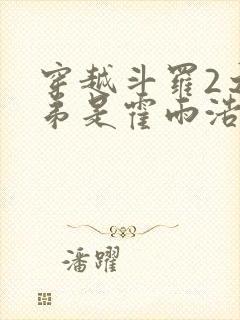 穿越斗罗2
弟是霍雨浩
潘躍